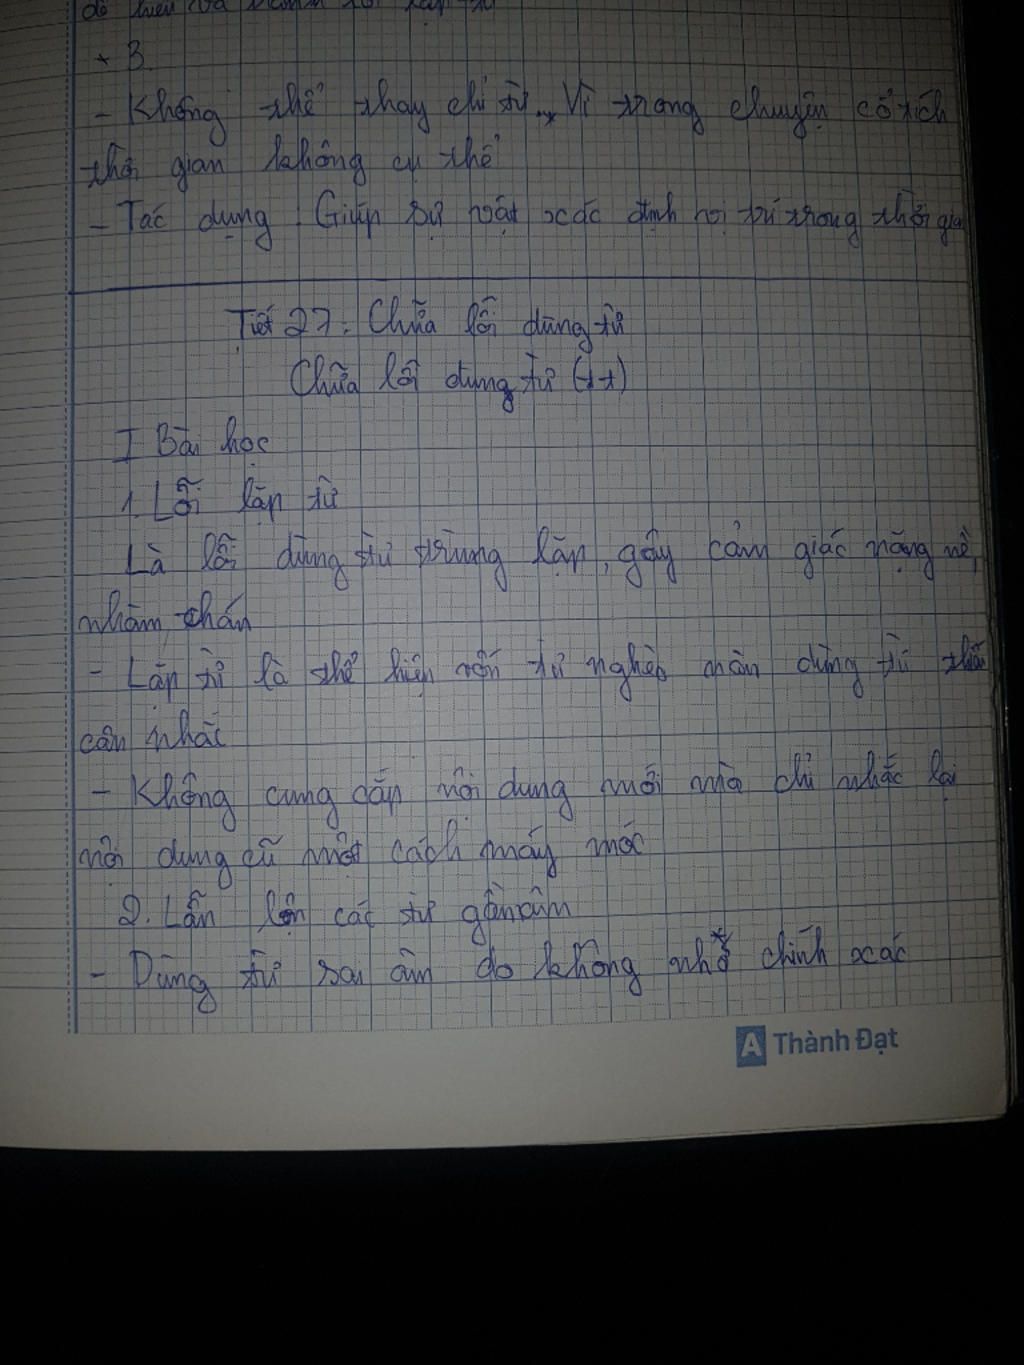 * 3.
- Không thể thay chỉ từ... Vì trong chuyện cổ tích
thời gian không cụ thể
- Tác dụng: Giúp sự vật xác định vị trí trong thời gian
Tiết 27: Chữa lỗi dùng từ
Chữa lỗi dùng từ (tt)
I Bài học
1. Lỗi lặp từ
Là lỗi dùng từ trùng lặp, gây cảm giác nặng nề,
nhàm chán
- Lặp từ là thể hiện vốn từ nghèo nàn dùng từ thiếu
cân nhắc
- Không cung cấp nội dung mới mà chỉ nhắc lại
nội dung cũ một cách máy móc
2. Lẫn lộn các từ gần âm
- Dùng từ sai âm do không nhớ chính xác
A Thành Đạt